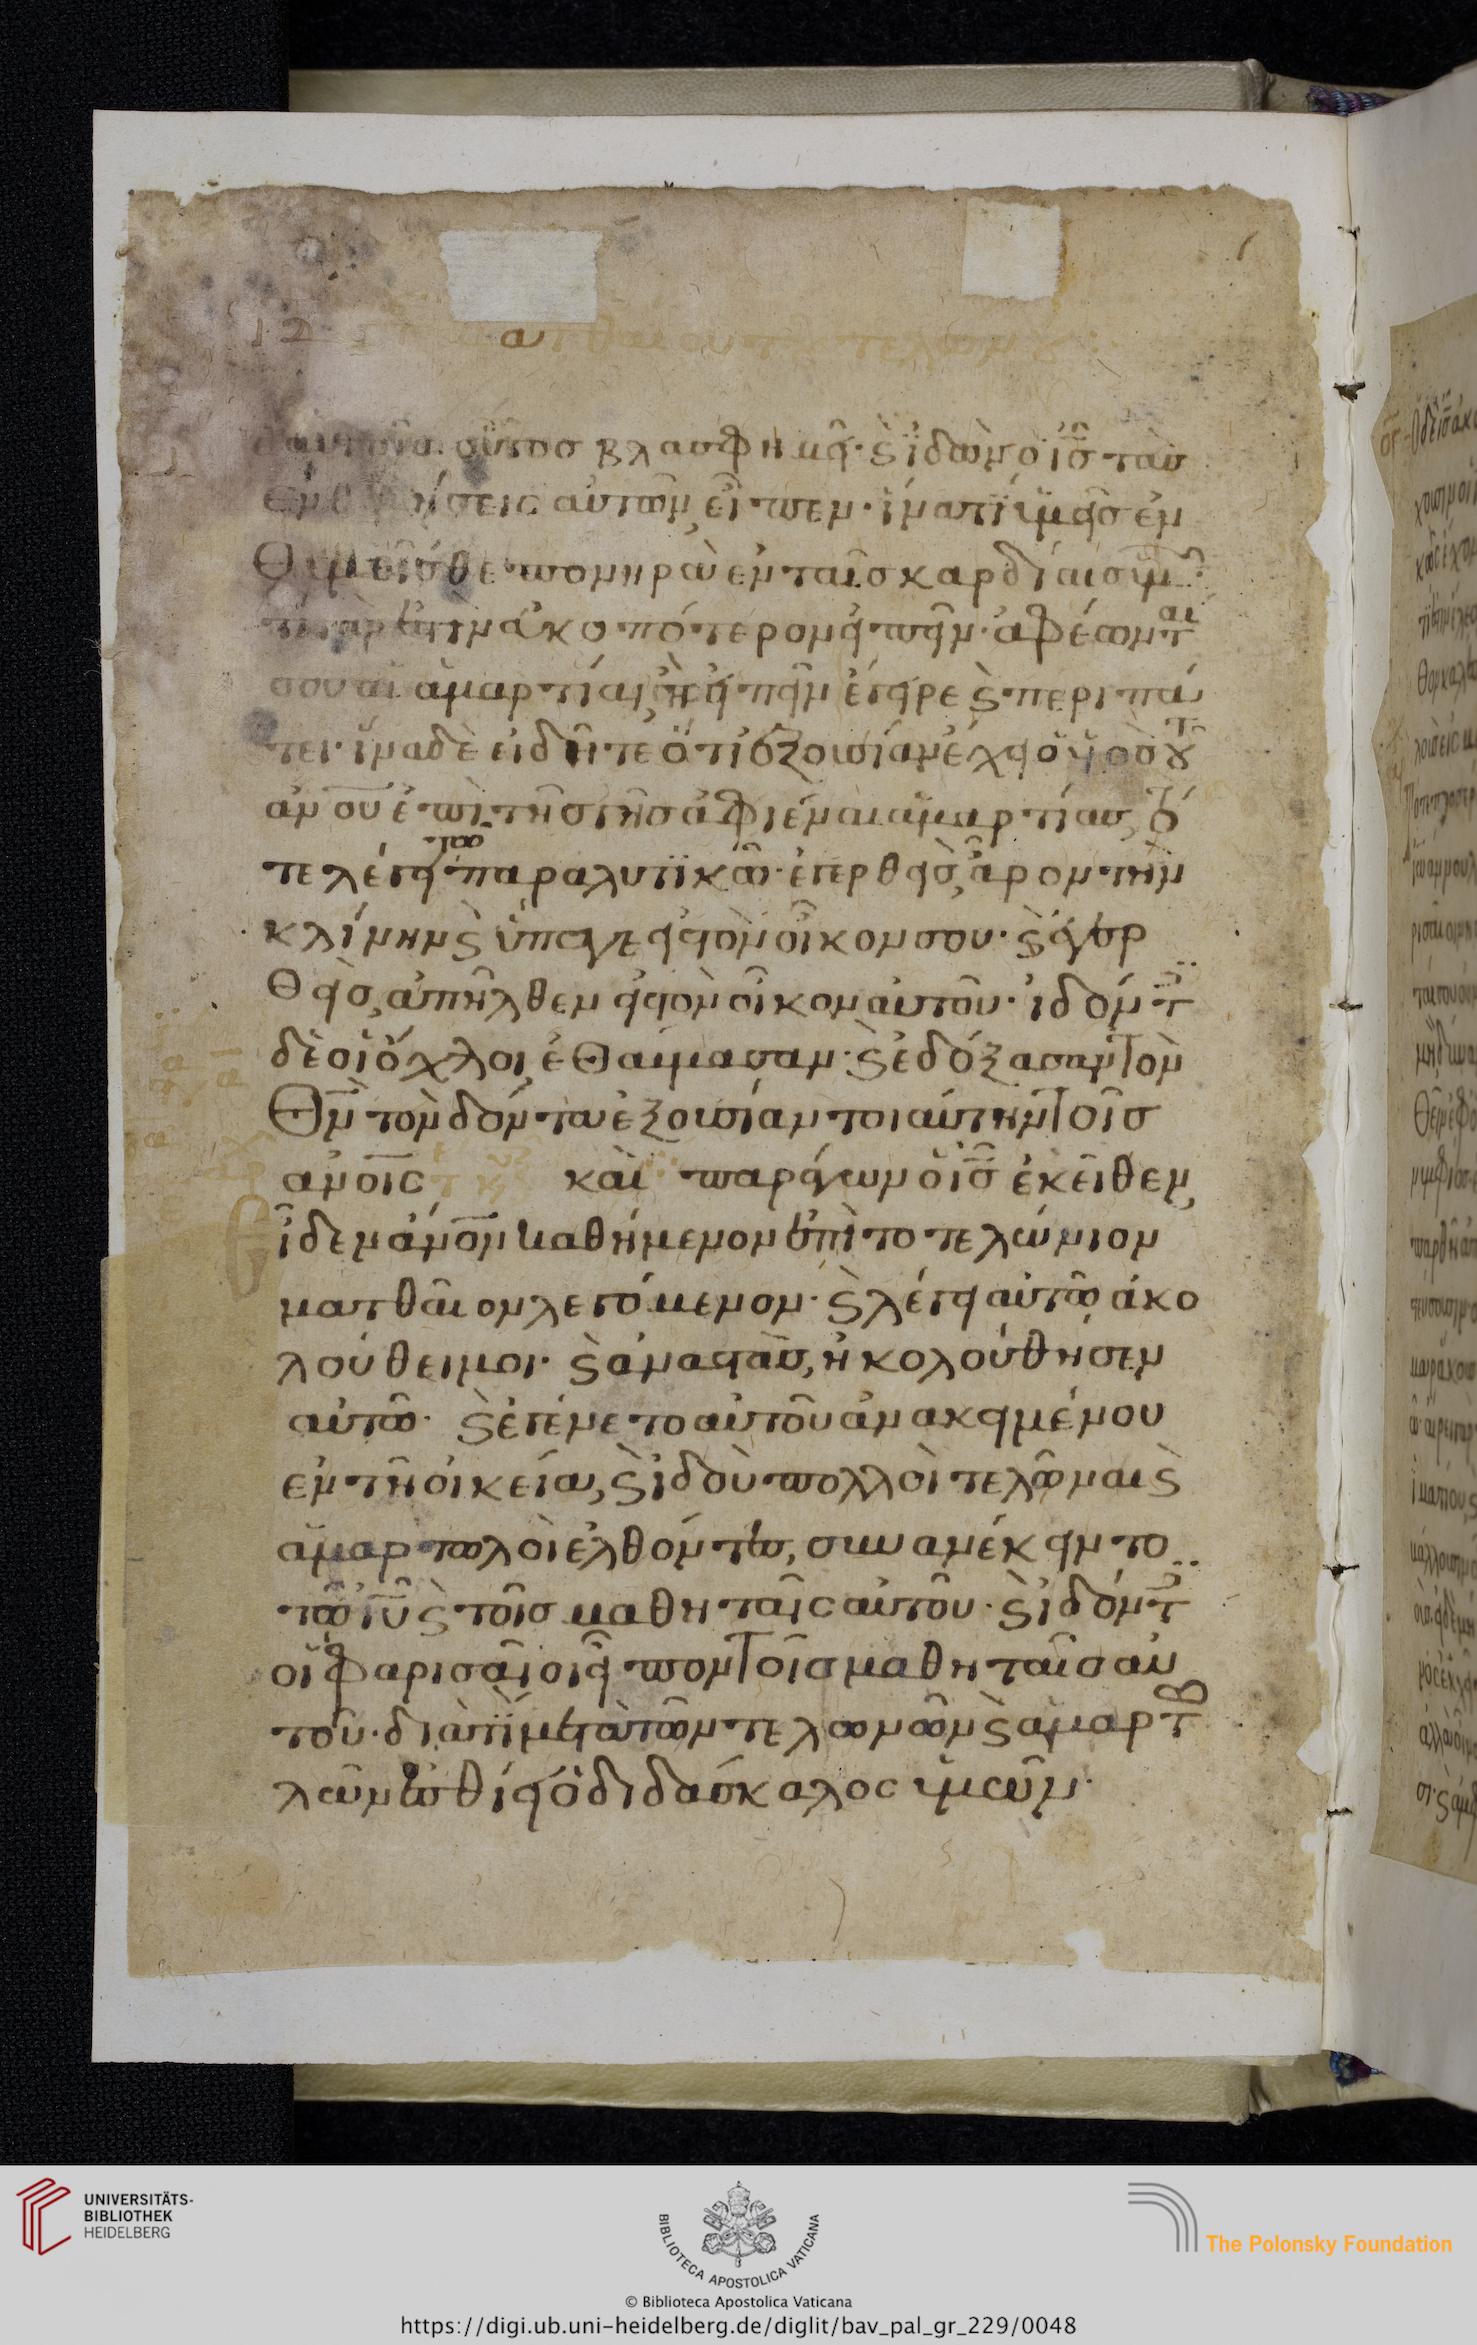 ματθαίου τοῦ τελώνου:
οὗτος βλασφημεῖ· ϗ ἰδὼν ὁ ις τὰς
αὐτῶν, εἶπεν· ἵνα τί ὑμεῖς ἐν
θυμεῖσθε πονηρὰ ἐν ταῖς καρδίαις ὑμ
τί γάρ ἐστιν ἀκοπότερον εἰπεῖν· ἀφέωντ αι
σου αἱ ἁμαρτίαι, ἢ εἰπεῖν ἔγειρε ϗ περιπά
τει· ἵνα δὲ εἰδῆτε ὅτι ἐξουσίαν ἔχει ὁ υς τοῦ
ανου ἐπὶ τῆς γῆς ἀφιέναι ἁμαρτίας, τό
τε λέγει τῷ παραλυτϊκῶ· ἐγερθεὶς, ἆρον τὴν
κλίνην ϗ ὕπαγε εἰς τὸν οἶκον σου· ϗ ἐγερ
θεὶς, ἀπῆλθεν εἰς τὸν οἶκον αὐτοῦ· ἰδόντ
δὲ οἱ ὄχλοι, ἐθαύμασαν· ϗ ἐδόξασαν τὸν
θν τὸν δόντα ἐξουσίαν τοιαύτην τοῖς
ανοις καὶ παράγων ὁ ις ἐκεῖθεν,
ἶδεν ανον καθήμενον ἐπὶ το τελώνιον
ματθαῖον λεγόμενον· ϗ λέγει αὐτῶ ἀκο
λούθει μοι· ϗ ἀναστὰς, ἠκολούθησεν
αὐτῶ· ϗ ἐγένετο αὐτοῦ ἀνακειμένου
ἐν τῆ οἰκεία, ϗ ἰδοὺ πολλοὶ τελῶναι ϗ
ἁμαρτωλοὶ ἐλθόντες, συνανέκειντο
τῶ ιυ ϗ τοῖς μαθηταῖς αὐτοῦ· ϗ ἰδόντ
οἱ φαρισαῖοι εἶπον τοῖς μαθηταῖς αὐ
τοῦ· διὰ τί μετὰ τῶν τελωνῶν ϗ ἁμαρτω
λῶν ἐσθίει ὁ διδάσκαλος ὑμῶν·
UNIVERSITÄTS-
BIBLIOTHEK
HEIDELBERG
BIBLIOTECA APOSTOLICA VATICANA
The Polonsky Foundation
© Biblioteca Apostolica Vaticana
https://digi.ub.uni-heidelberg.de/diglit/bav_pal_gr_229/0048